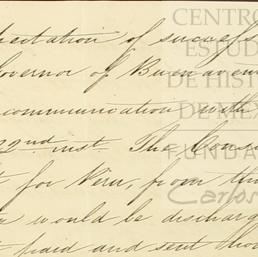 expectation of success
Governor of Buenaven
communication with
22nd inst. The Consu
for Peru, from the
would be discharg
paid and sent
CENTRO
ESTUD
DE HIST
DE MÉX
FUNDA
Carlos